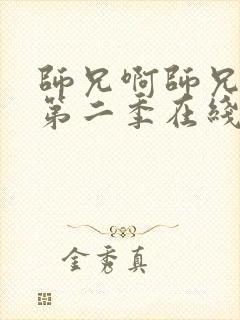 師兄啊師兄
第二季在綫
金秀真